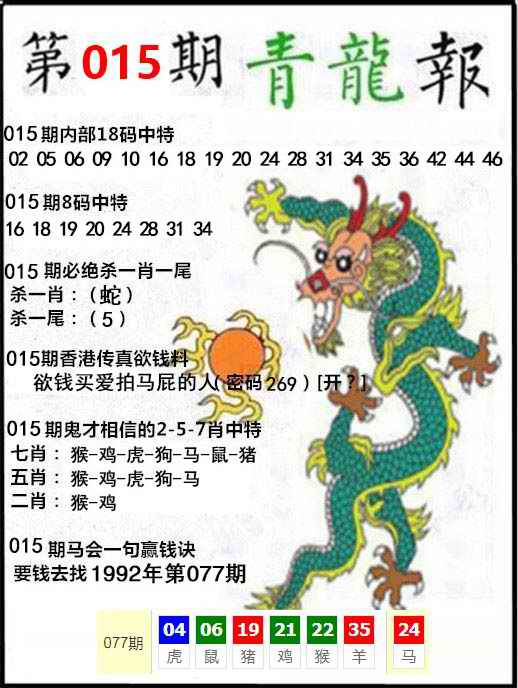 第015期青龍報
015期内部18码中特
02 05 06 09 10 16 18 19 20 24 28 31 34 35 36 42 44 46
015期8码中特
16 18 19 20 24 28 31 34
015 期必绝杀一肖一尾
杀一肖：（蛇）
杀一尾：（5）
015期香港传真欲钱料
欲钱买爱拍马屁的人（密码269）[开？]
015期鬼才相信的2-5-7肖中特
七肖：猴-鸡-虎-狗-马-鼠-猪
五肖：猴-鸡-虎-狗-马
二肖：猴-鸡
015 期马会一句赢钱诀
要钱去找1992年第077期
077期 04 06 19 21 22 35 24
虎 鼠 猪 鸡 猴 羊 马